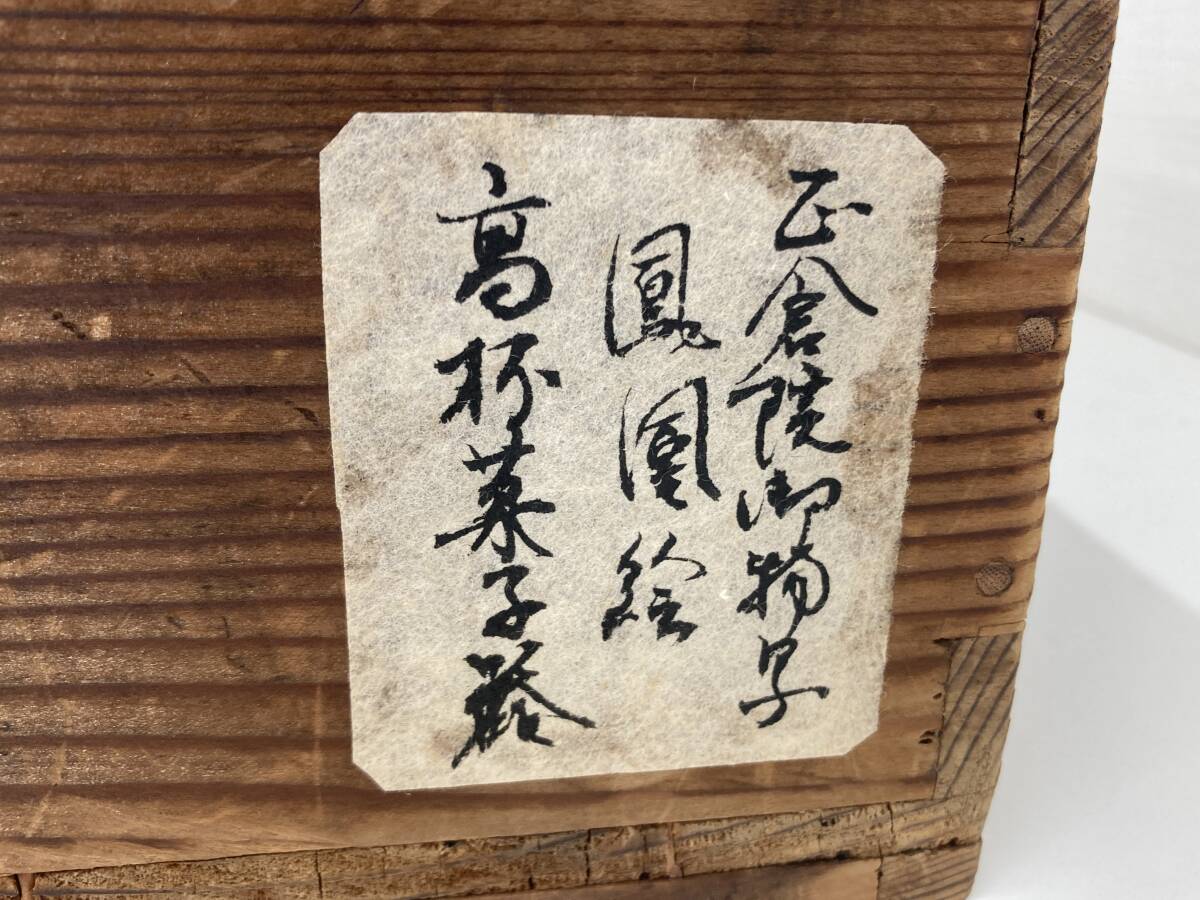 正倉院御物写
鳳凰絵
高杯菓子器